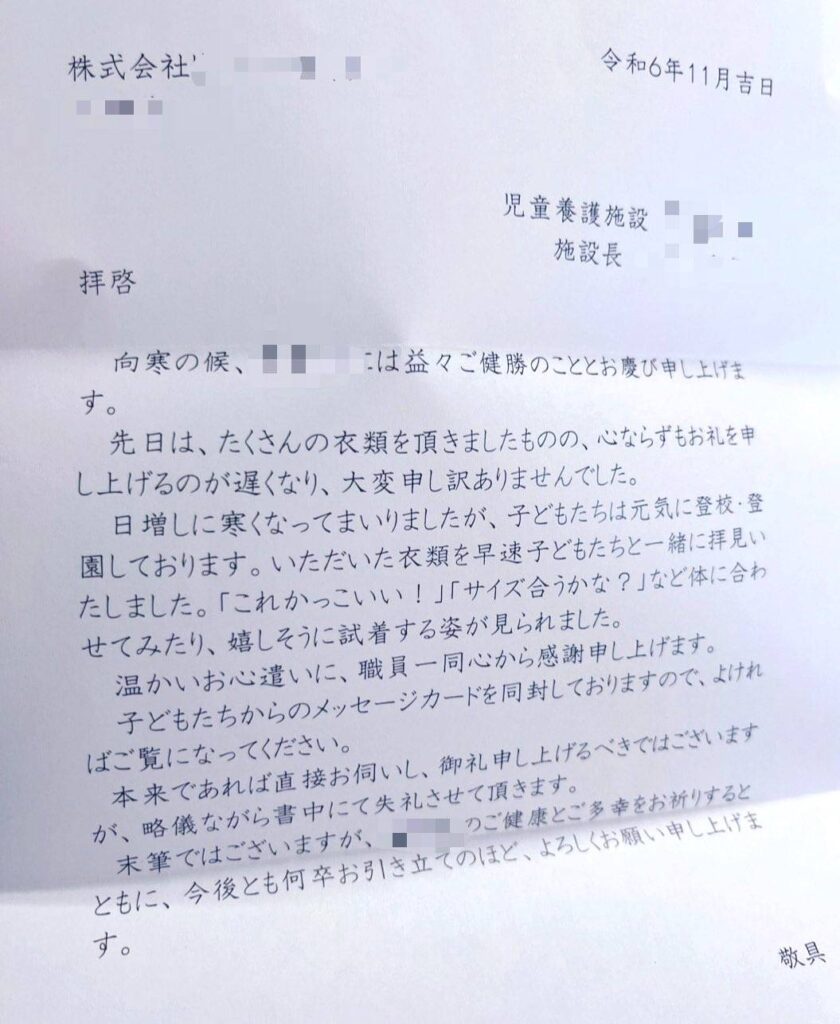 株式会社
令和6年11月吉日
児童養護施設
施設長
拝啓
向寒の候、には益々ご健勝のこととお慶び申し上げま
す。
先日は、たくさんの衣類を頂きましたものの、心ならずもお礼を申
し上げるのが遅くなり、大変申し訳ありませんでした。
日増しに寒くなってまいりましたが、子どもたちは元気に登校・登
園しております。いただいた衣類を早速子どもたちと一緒に拝見い
たしました。「これかっこいい!」「サイズ合うかな?」など体に合わ
せてみたり、嬉しそうに試着する姿が見られました。
温かいお心遣いに、職員一同心から感謝申し上げます。
子どもたちからのメッセージカードを同封しておりますので、よけれ
ばご覧になってください。
本来であれば直接お伺いし、御礼申し上げるべきではございます
が、略儀ながら書中にて失礼させて頂きます。
末筆ではございますが、のご健康とご多幸をお祈りすると
ともに、今後とも何卒お引き立てのほど、よろしくお願い申し上げま
す。
敬具